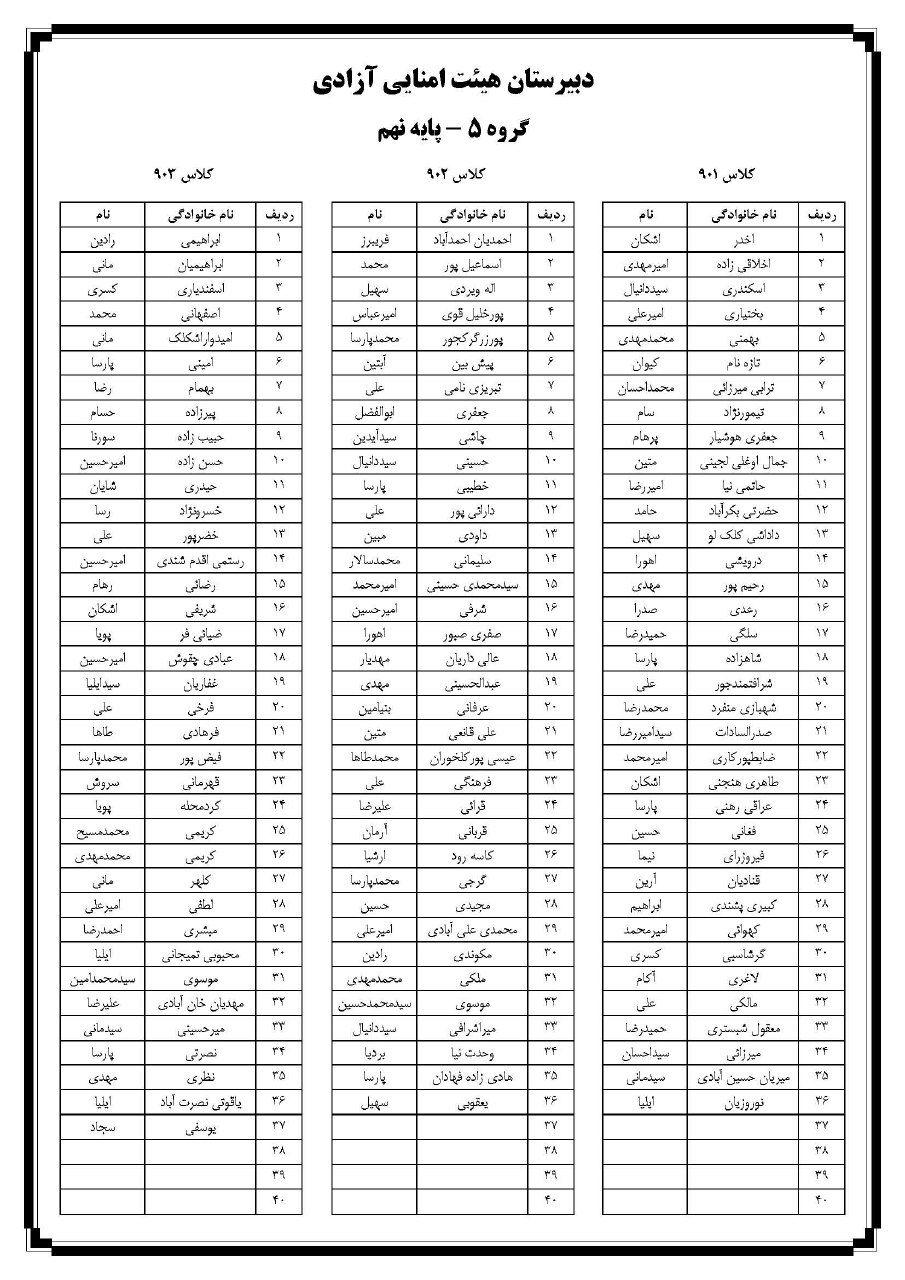 دبیرستان هیئت امنایی آزادی
گروه ۵ - پایه نهم
کلاس ۹۰۱
ردیف نام خانوادگی نام
۱ اخدر اشکان
۲ اخلاقی زاده امیرمهدی
۳ اسکندری سیددانیال
۴ بختیاری امیرعلی
۵ بهمنی محمدمهدی
۶ تازه نام کیوان
۷ ترابی میرزائی محمداحسان
۸ تیمورنژاد سام
۹ جعفری هوشیار پرهام
۱۰ جمال اوغلی لجینی متین
۱۱ حاتمی نیا امیررضا
۱۲ حضرتی بکرآباد حامد
۱۳ داداشی کلک لو سهیل
۱۴ درویشی اهورا
۱۵ رحیم پور مهدی
۱۶ رعدی صدرا
۱۷ سلگی حمیدرضا
۱۸ شاهزاده پارسا
۱۹ شرافتمندجور علی
۲۰ شهبازی منفرد محمدرضا
۲۱ صدرالسادات سیدامیررضا
۲۲ ضابطپورکاری امیرمحمد
۲۳ طاهری هنجنی اشکان
۲۴ عراقی رهنی پارسا
۲۵ فغانی حسین
۲۶ فیروزرای نیما
۲۷ قنادیان آرین
۲۸ کبیری پشندی ابراهیم
۲۹ کهوائی امیرمحمد
۳۰ گرشاسبی کسری
۳۱ لاغری آکام
۳۲ مالکی علی
۳۳ معقول شبستری حمیدرضا
۳۴ میرزائی سیداحسان
۳۵ میریان حسین آبادی سیدمانی
۳۶ نوروزیان ایلیا
۳۷
۳۸
۳۹
۴۰
کلاس ۹۰۲
ردیف نام خانوادگی نام
۱ احمدیان احمدآباد فریبرز
۲ اسماعیل پور محمد
۳ اله ویردی سهیل
۴ پورخلیل قوی امیرعباس
۵ پورزرگرکجور محمدپارسا
۶ پیش بین آبتین
۷ تبریزی نامی علی
۸ جعفری ابوالفضل
۹ چاشی سیدآیدین
۱۰ حسینی سیددانیال
۱۱ خطیبی پارسا
۱۲ دارائی پور علی
۱۳ داودی مبین
۱۴ سلیمانی محمدسالار
۱۵ سیدمحمدی حسینی امیرمحمد
۱۶ شرفی امیرحسین
۱۷ صفری صبور اهورا
۱۸ عالی داریان مهدیار
۱۹ عبدالحسینی مهدی
۲۰ عرفانی بنیامین
۲۱ علی قانعی متین
۲۲ عیسی پورکلخوران محمدطاها
۲۳ فرهنگی علی
۲۴ قرائی علیرضا
۲۵ قربانی آرمان
۲۶ کاسه رود ارشیا
۲۷ گرجی محمدپارسا
۲۸ مجیدی حسین
۲۹ محمدی علی آبادی امیرعلی
۳۰ مکوندی رادین
۳۱ ملکی محمدمهدی
۳۲ موسوی سیدمحمدحسین
۳۳ میراشرافی سیددانیال
۳۴ وحدت نیا بردیا
۳۵ هادی زاده فهادان پارسا
۳۶ یعقوبی سهیل
۳۷
۳۸
۳۹
۴۰
کلاس ۹۰۳
ردیف نام خانوادگی نام
۱ ابراهیمی رادین
۲ ابراهیمیان مانی
۳ اسفندیاری کسری
۴ اصفهانی محمد
۵ امیدواراشکلک مانی
۶ امینی پارسا
۷ بهمام رضا
۸ پیرزاده حسام
۹ حبیب زاده سورنا
۱۰ حسن زاده امیرحسین
۱۱ حیدری شایان
۱۲ خسرونژاد رسا
۱۳ خضرپور علی
۱۴ رستمی اقدم شندی امیرحسین
۱۵ رضائی رهام
۱۶ شریفی اشکان
۱۷ ضیائی فر پویا
۱۸ عبادی چقوش امیرحسین
۱۹ غفاریان سیدایلیا
۲۰ فرخی علی
۲۱ فرهادی طاها
۲۲ فیض پور محمدپارسا
۲۳ قهرمانی سروش
۲۴ کردمحله پویا
۲۵ کریمی محمدمسیح
۲۶ کریمی محمدمهدی
۲۷ کلهر مانی
۲۸ لطفی امیرعلی
۲۹ مبشری احمدرضا
۳۰ محبوبی تمیجانی ایلیا
۳۱ موسوی سیدمحمدامین
۳۲ مهدیان خان آبادی علیرضا
۳۳ میرحسینی سیدمانی
۳۴ نصرتی پارسا
۳۵ نظری مهدی
۳۶ یاقوتی نصرت آباد ایلیا
۳۷ یوسفی سجاد
۳۸
۳۹
۴۰